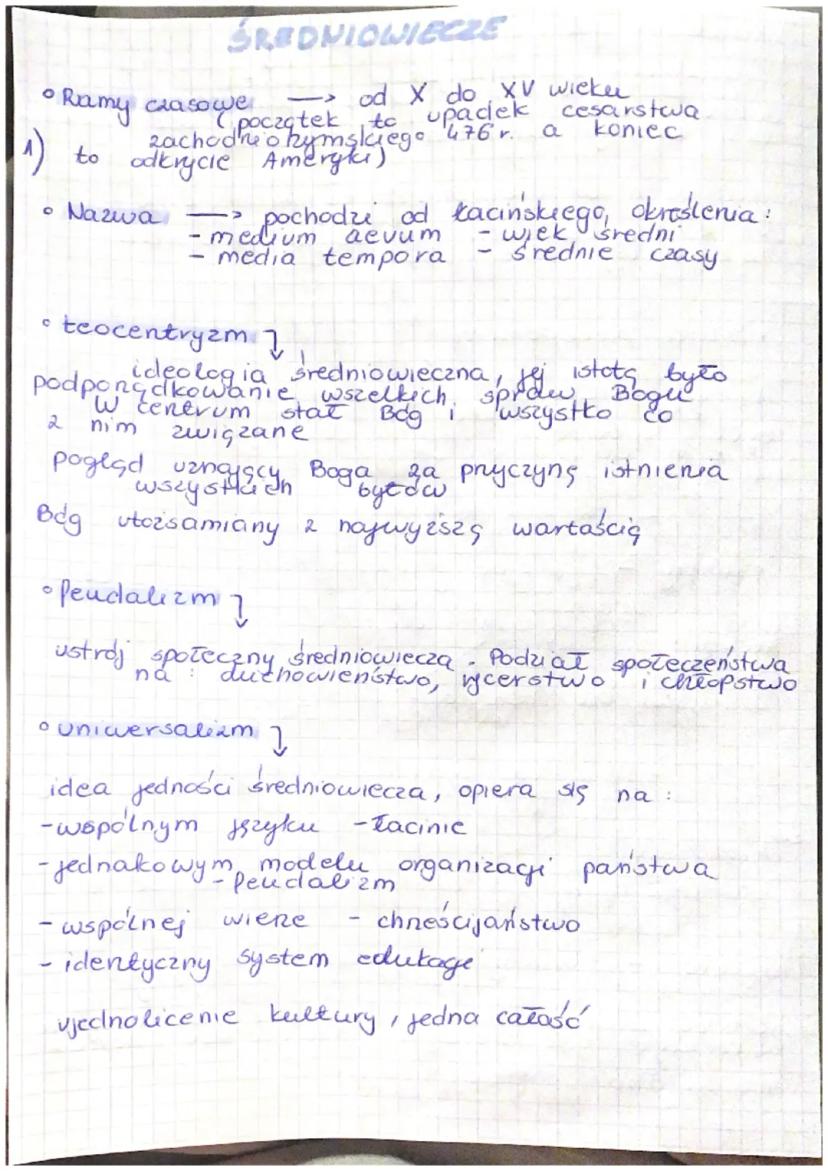 ŚREDNIOWIECZE
° Ramy czasowe → od X do XV wieku
(początek to upadek cesarstwa
zachodniorzymskiego 476 r. a koniec
1) to odkrycie Ameryki)
° Nazwa → pochodzi od łacińskiego określenia:
- medium aevum - wiek średni
- media tempora - średnie czasy
° teocentryzm ↓
ideologia średniowieczna, jej istotą było
podporządkowanie wszelkich spraw Bogu
W centrum stał Bóg i wszystko co
z nim związane
pogląd uznający Boga za przyczynę istnienia
wszystkich bytów
Bóg utożsamiany z najwyższą wartością
° feudalizm ↓
ustrój społeczny średniowiecza. Podział społeczeństwa
na: duchowieństwo, rycerstwo i chłopstwo
° uniwersalizm ↓
idea jedności średniowiecza, opiera się na:
- wspólnym języku - łacinie
- jednakowym modelu organizacji państwa
- feudalizm
- wspólnej wierze - chrześcijaństwo
- identyczny system edukacji
ujednolicenie kultury, jedna całość